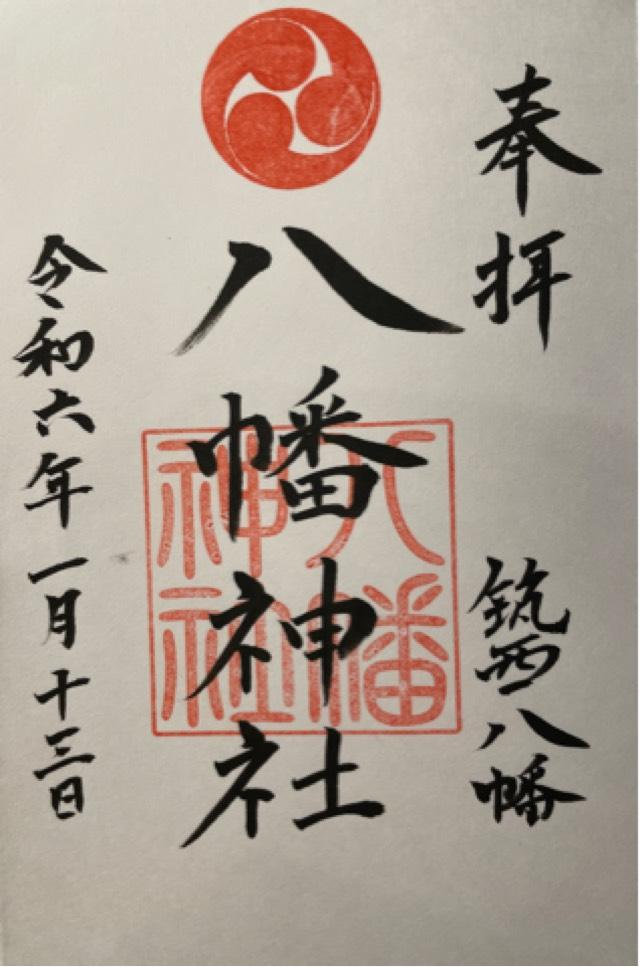 奉拝
筑西八幡
八幡神社
八幡神社
令和六年一月十三日